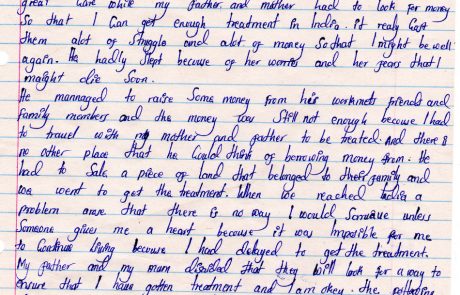 great care while my father and mother had to look for money
so that I Can get enough treatment in India. it realy Cost
them alot of struggle and alot of money so that I might be well
again. He hadly slept because of her worries and her fears that I
maight die soon.
He mannaged to raise Some money from his workmets friends and
family members and the money was still not enough because I had
to travel with my mother and father to be treated. And there is
no other place that he Could think of borrowing money from. He
had to Sale a piece of land that belonged to their family and
we went to get the treatment. When we reached India a
problem arose that there is no way I would Survive unless
Someone gives me a heart because it was Impossible for me
to Continue living because I had delayed to get the treatment.
My father and my mum dicided that they will look for a way to
ensure that I have gotten treatment and I am okey. the